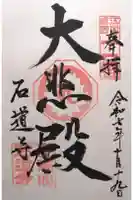 奉拝
令和七年十月十九日
大悲殿
石道寺